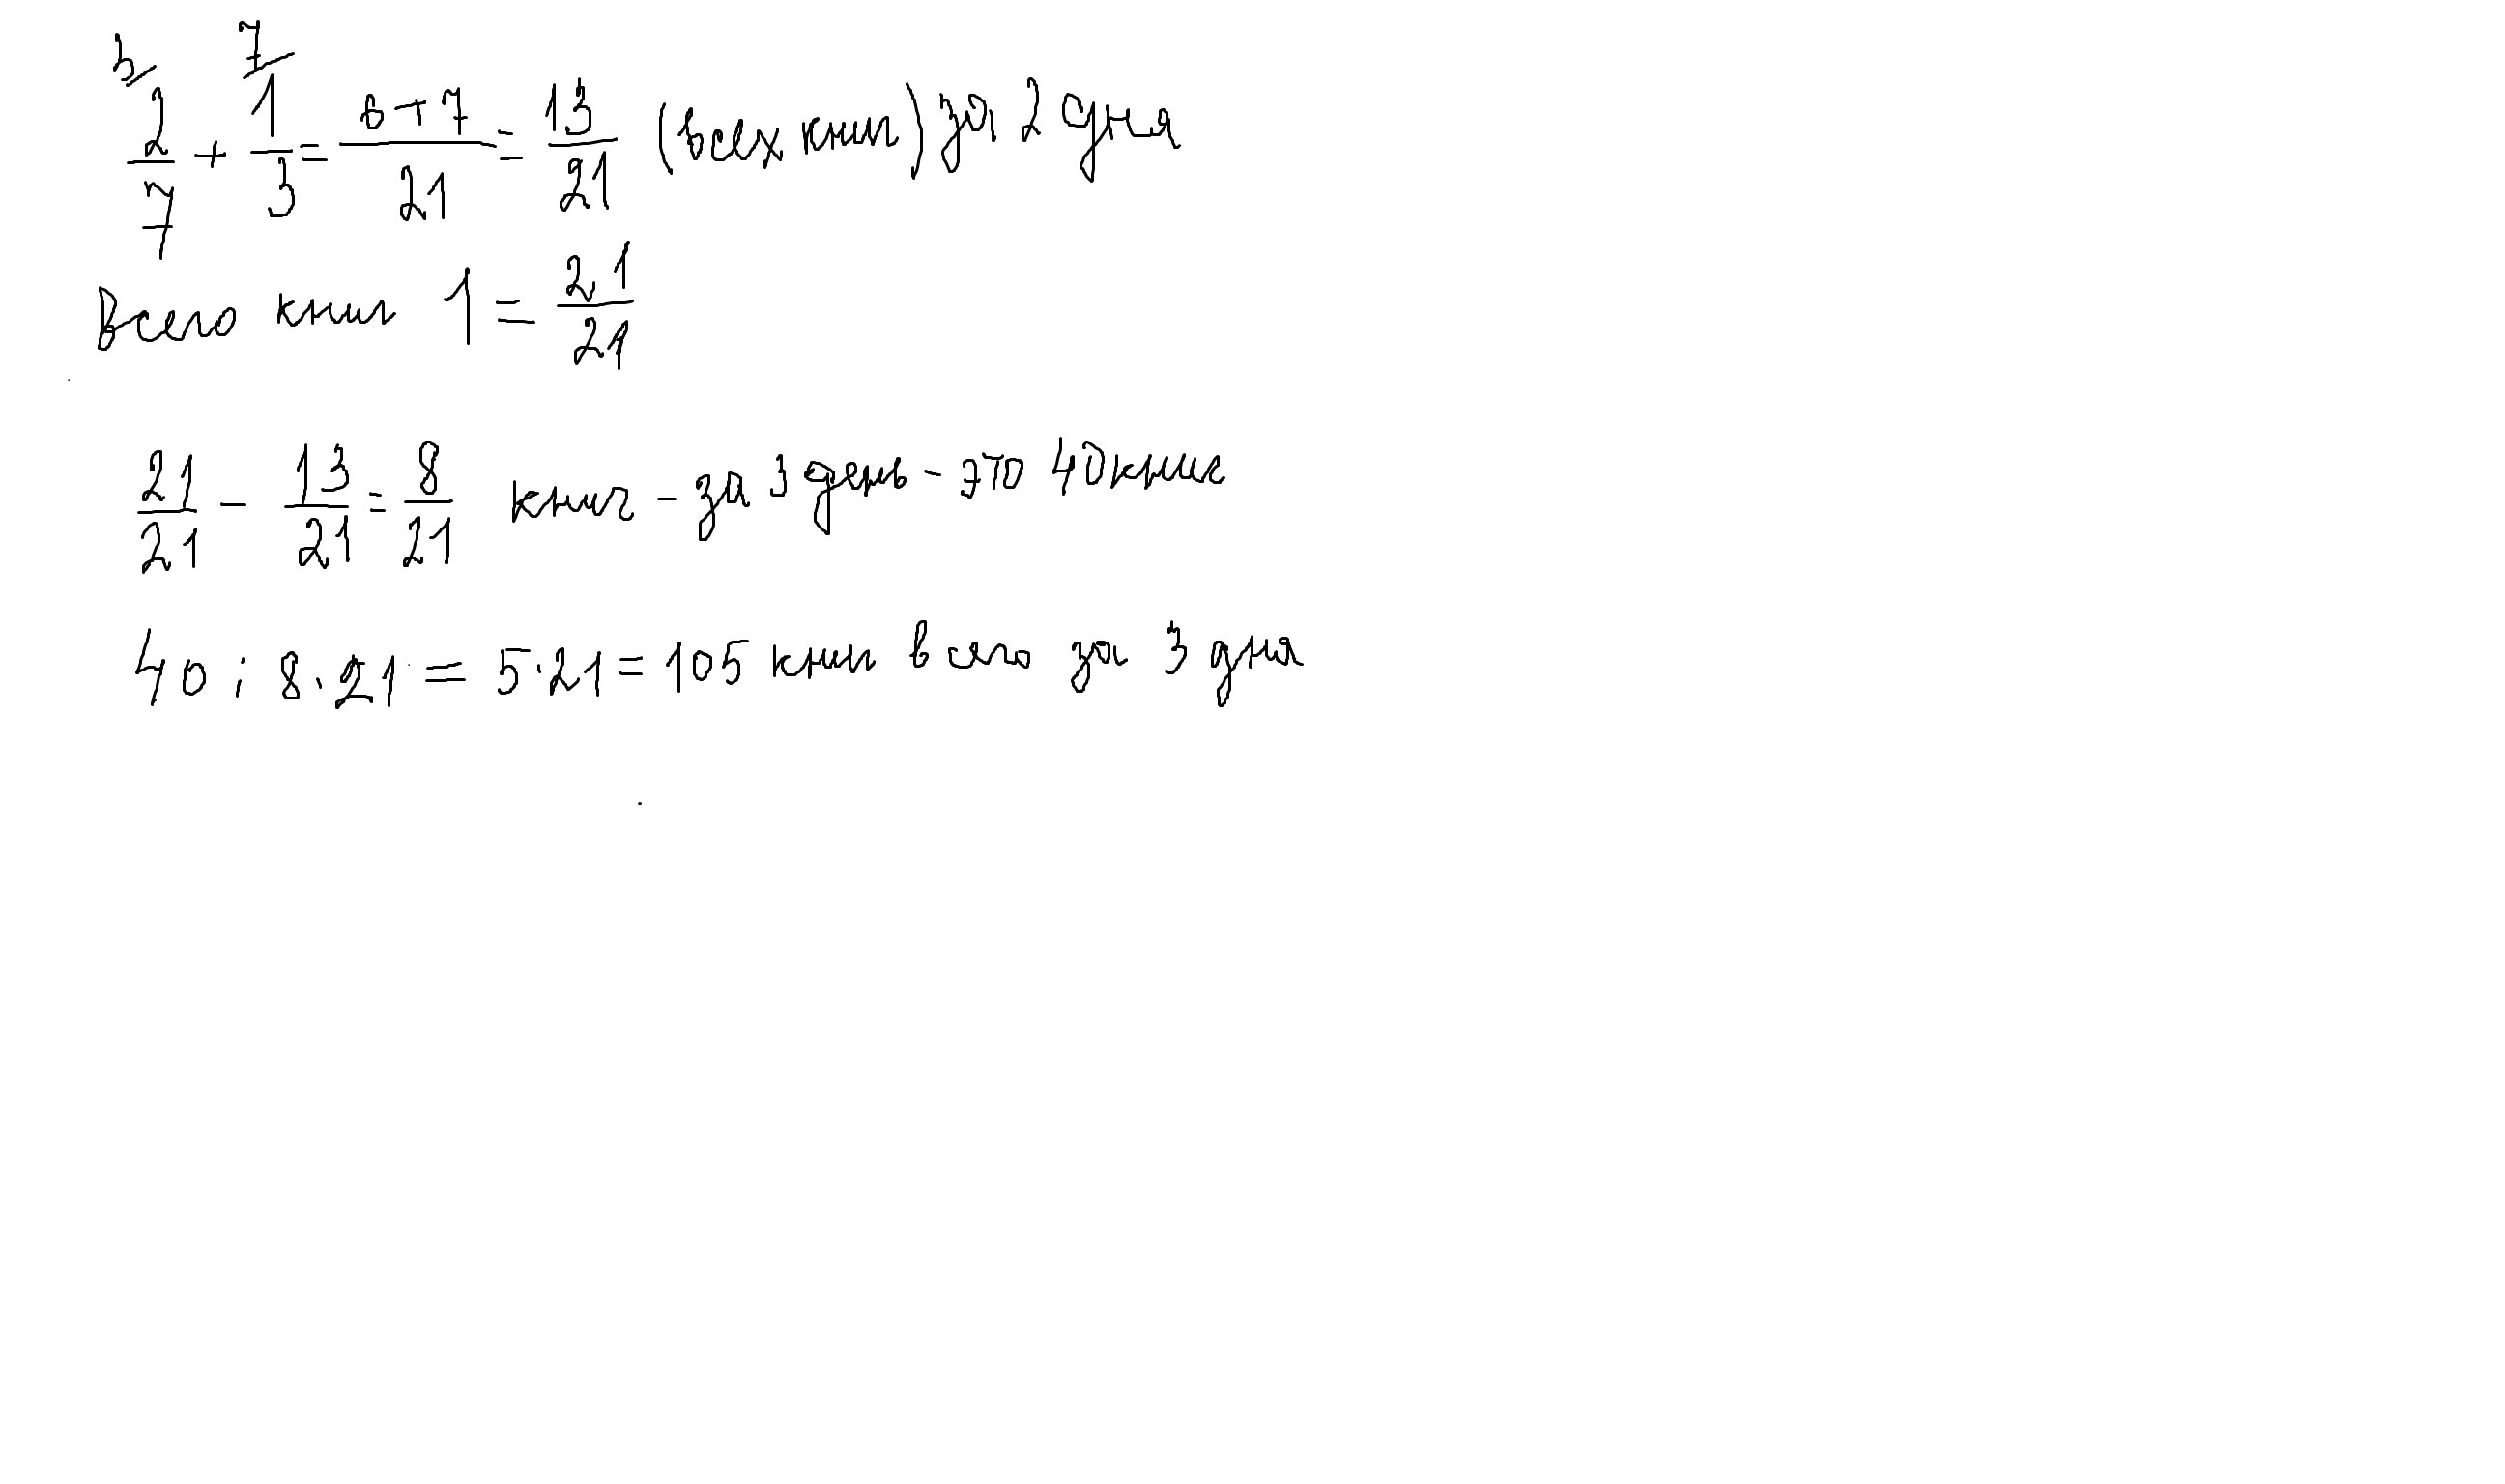 2/7 + 1/3 = 6+7/21 = 13/21 (всех книг) за 2 дня
Всего книг 1 = 21/21
21/21 - 13/21 = 8/21 книг - за 3 день - это 40 книг
40 : 8 · 21 = 5 · 21 = 105 книг всего за 3 дня